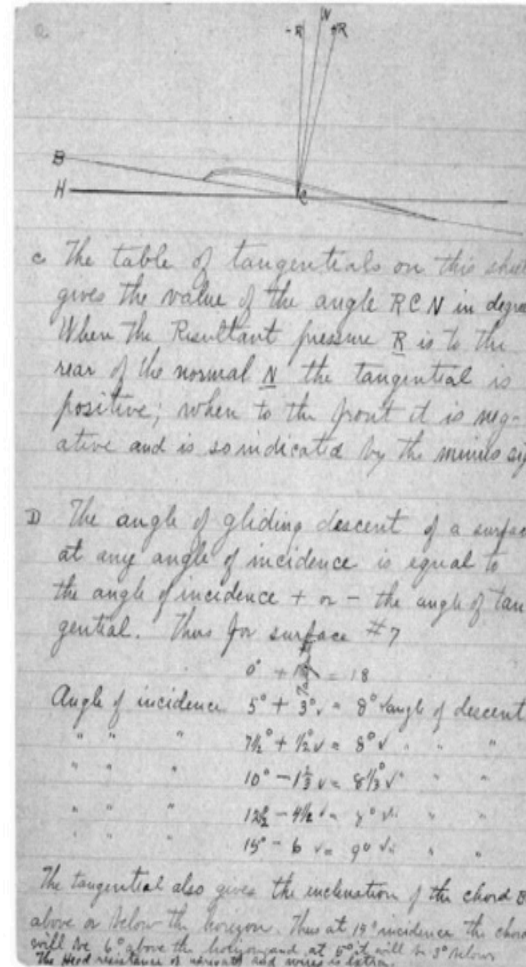 -R N R
B
H
C
c The table of tangentials on this sheet
gives the value of the angle RCN in degre
When the Resultant pressure R is to the
rear of the normal N the tangential is
positive; when to the front it is neg-
ative and is so indicated by the minus sig
D The angle of gliding descent of a surfac
at any angle of incidence is equal to
the angle of incidence + or - the angle of tan
gential. Thus for surface #7
0° + = 18
Angle of incidence 5° + 3° v = 8° v angle of descent
" " " 7½° + ½ v = 8° v " " "
" " " 10° - 1⅔ v = 8⅓° v " "
" " " 12½ - 4½ v = 8° v " " "
" " " 15° - 6 v = 9° v " "
The tangential also gives the inclination of the chord B
above or below the horizon. Thus at 15° incidence the chord
will be 6° above the horizon and at 5° it will be 3° below
The Head resistance of and wires is extra.